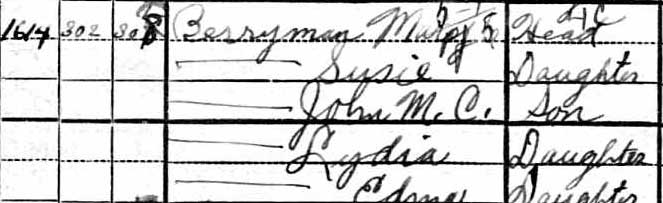 1614 302 308 Berryman Mary Head
Susie Daughter
John M. C. Son
Lydia Daughter
Edna Daughter